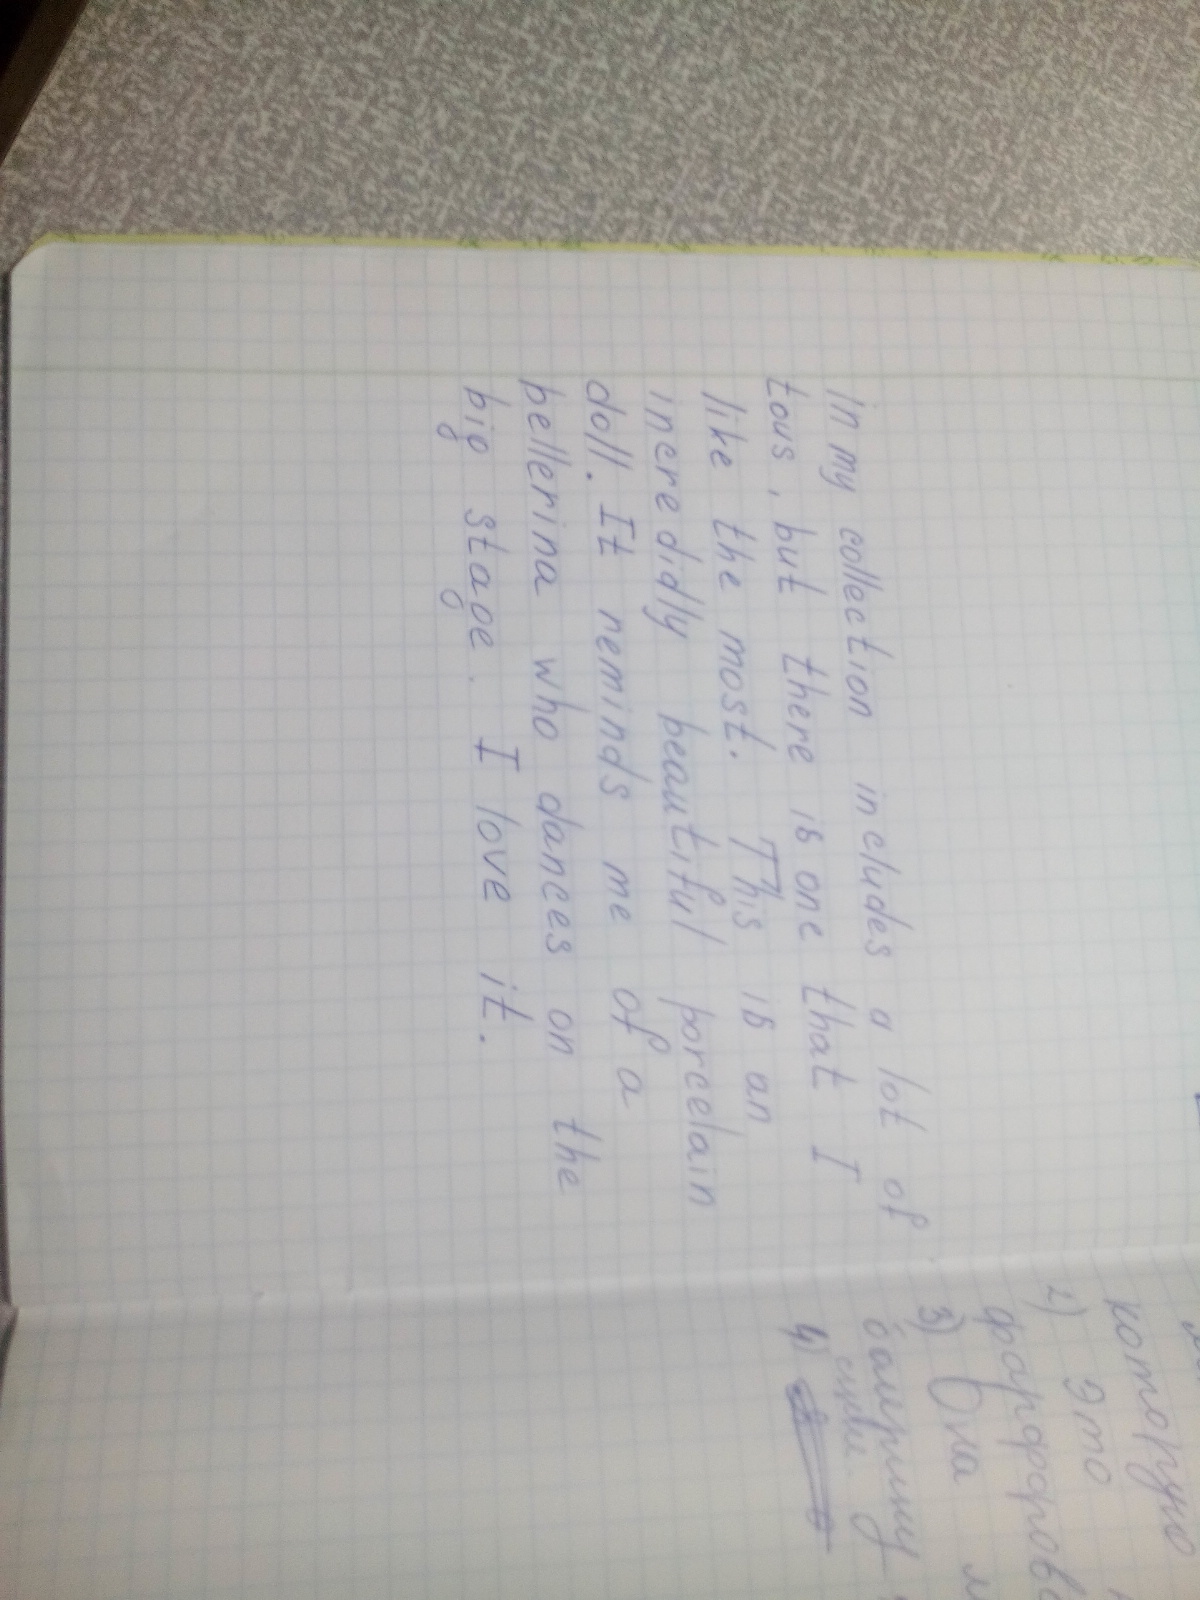 In my collection includes a lot of
tous, but there is one that I
like the most. This is an
incredidly beautiful porcelain
doll. It reminds me of a
bellerina who dances on the
big stage. I love it.
которую
2) Это
фарфоров
3) Она
балерину
сцене
4)